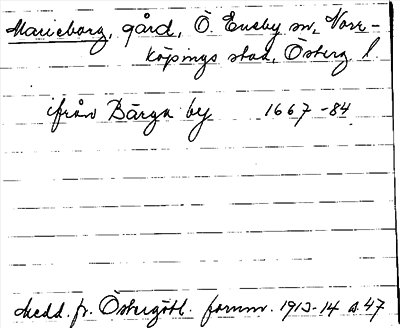 Marieborg, gård, Ö. Eneby sn, Norr-
köpings stad, Österg l
ifrån Bärga by 1667-84
Medd. fr. Östergötl. fornm. 1913-14 s. 47